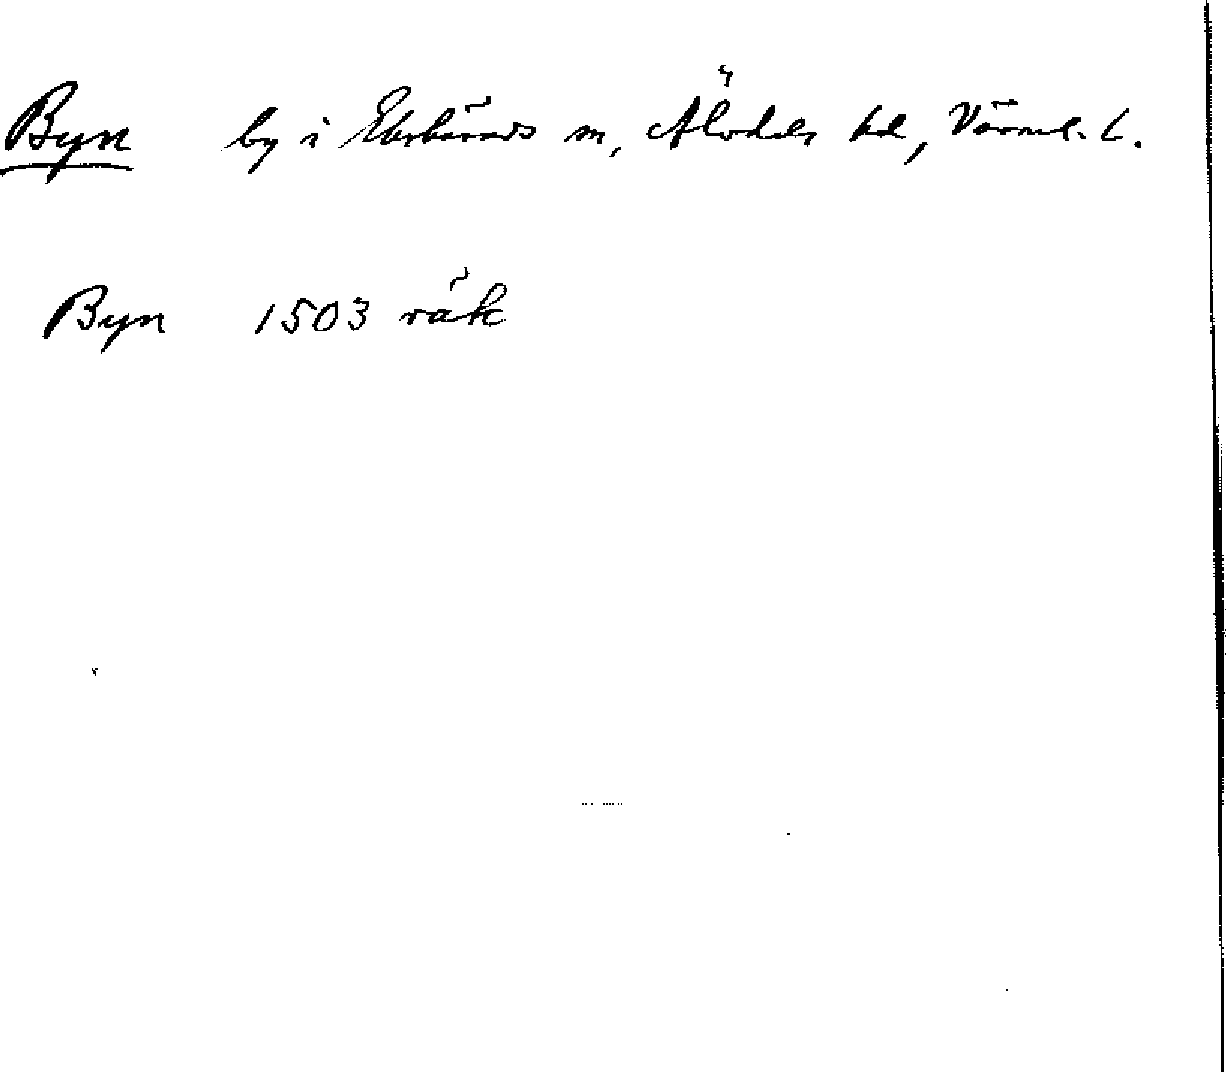 Byn by i Ekshärads sn, Älvdals hd, Värml. l.
Byn 1503 räk